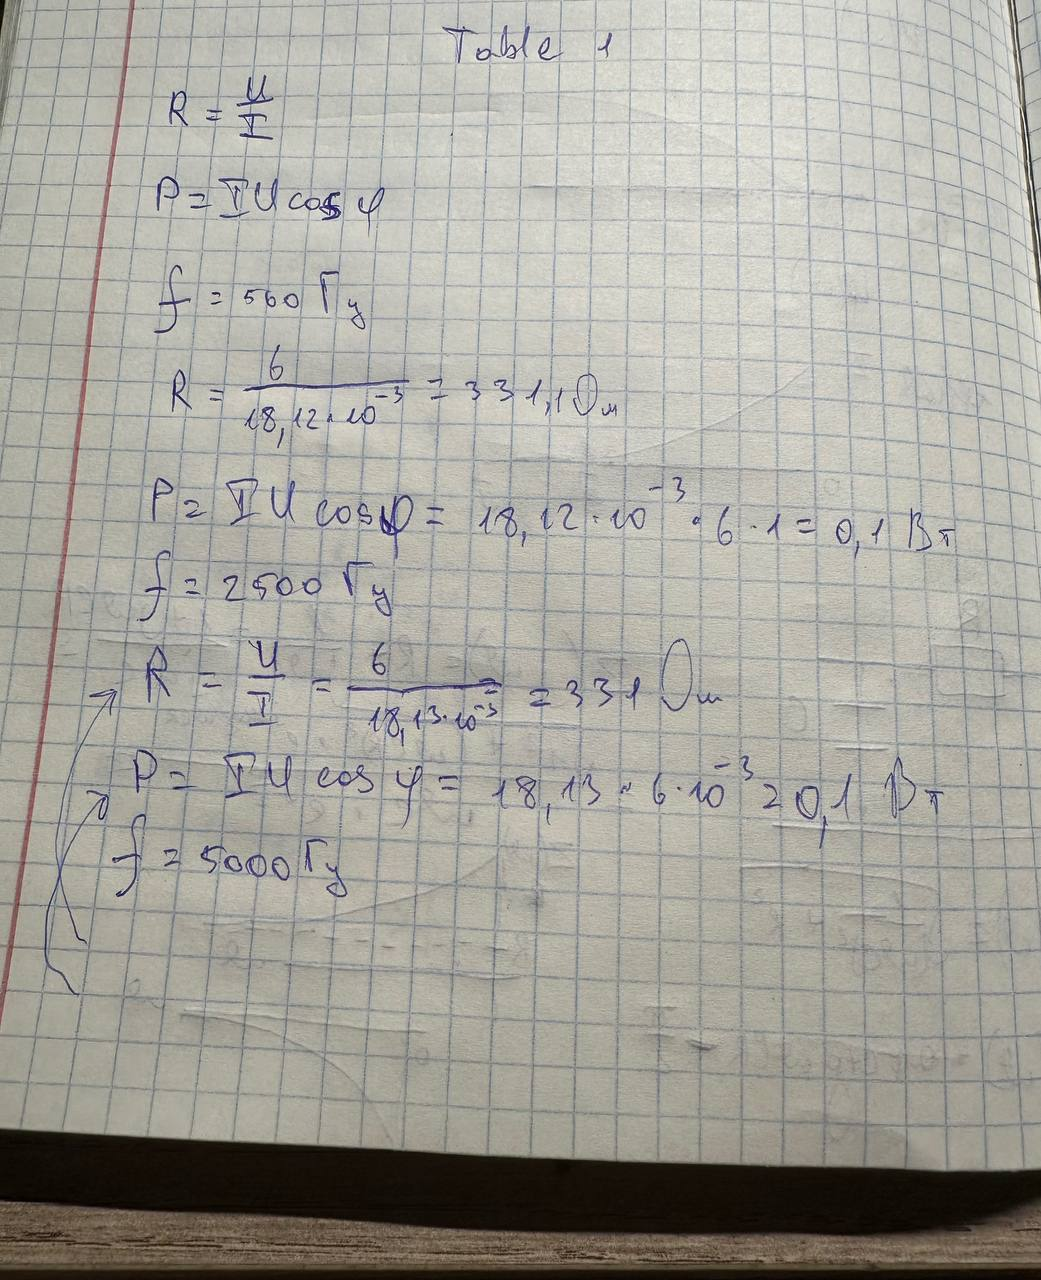 Table 1
R = U/I
P = IU cos φ
f = 500 Гц
R = 6/(18,12·10⁻³) = 331,1 Ом
P = IU cos φ = 18,12·10⁻³·6·1 = 0,1 Вт
f = 2500 Гц
R = U/I = 6/(18,13·10⁻³) = 331 Ом
P = IU cos φ = 18,13·6·10⁻³ = 0,1 Вт
f = 5000 Гц